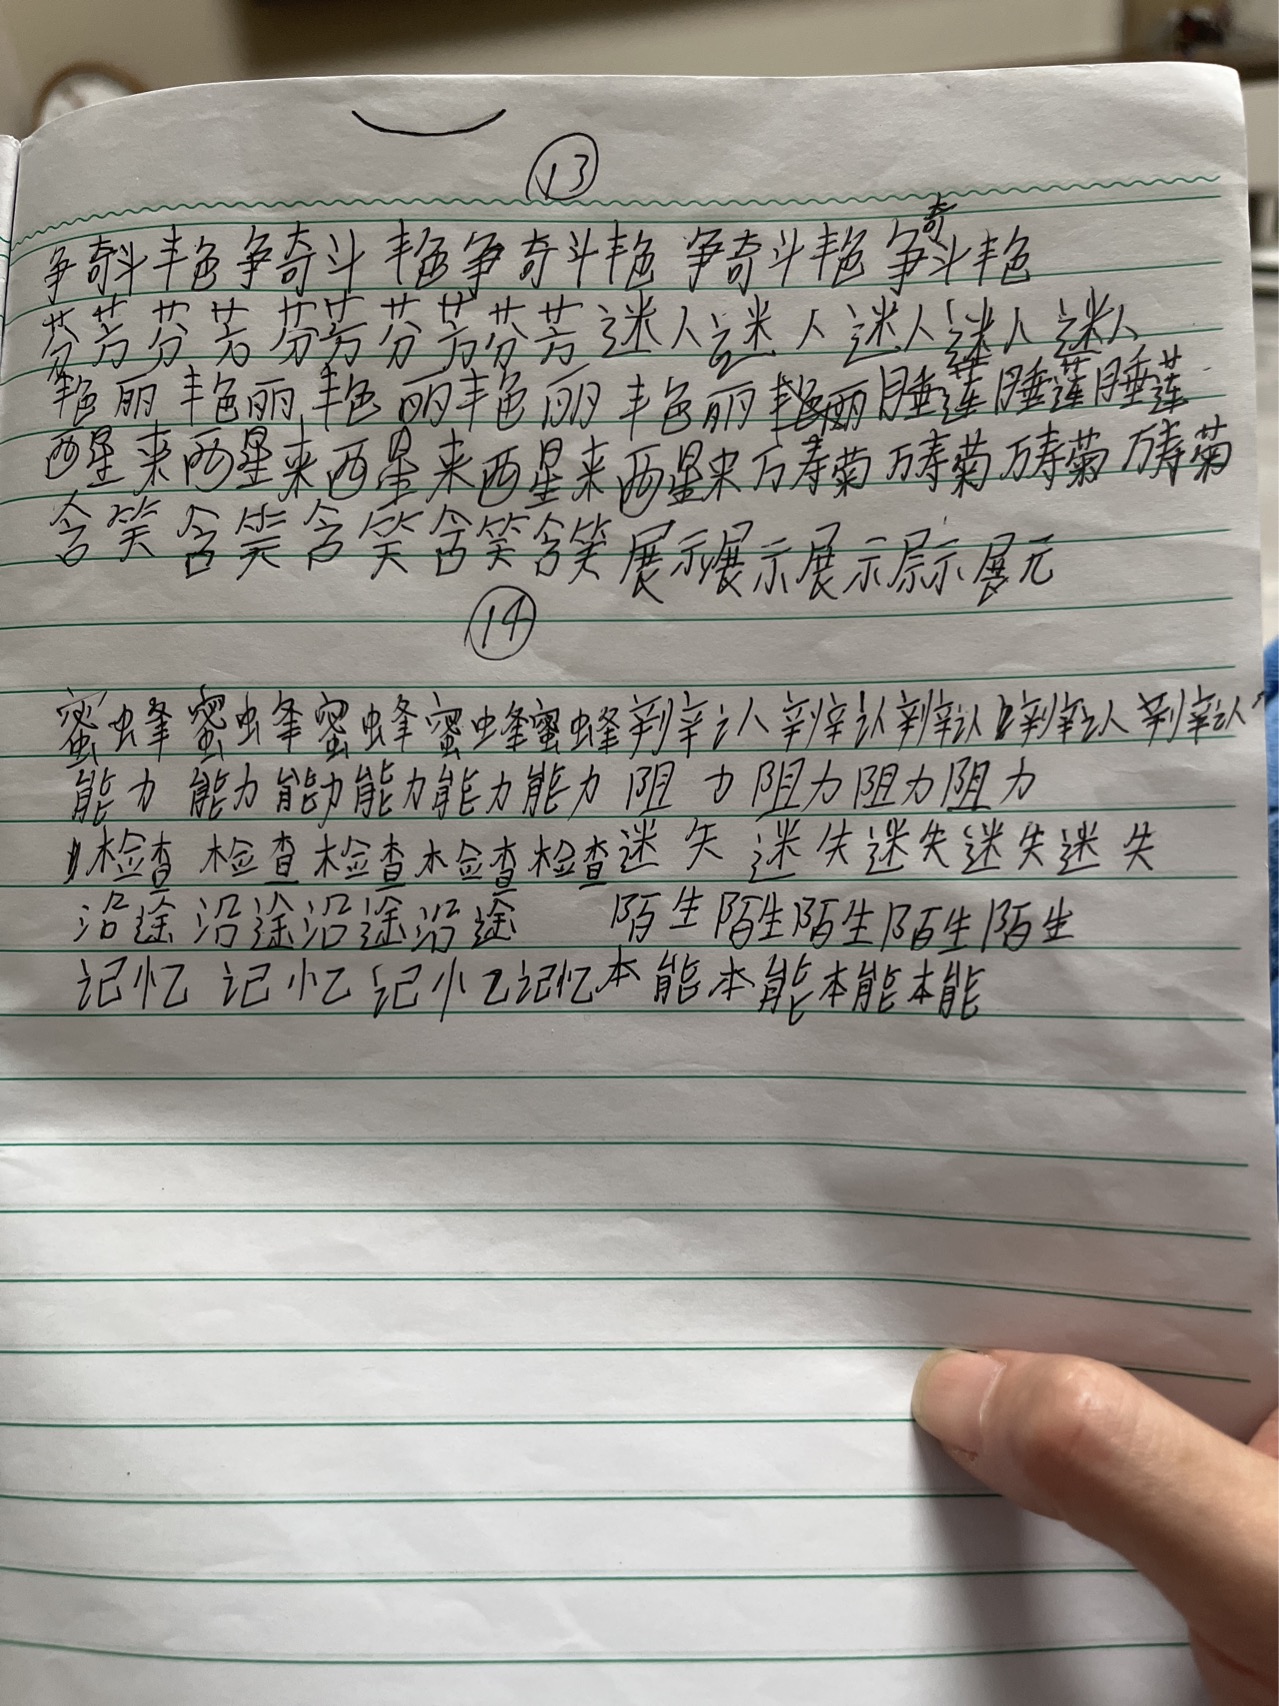 13
争奇斗艳争奇斗艳争奇斗艳争奇斗艳争奇斗艳
芬芳芬芳芬芳芬芳芬芳迷人迷人迷人迷人迷人
艳丽艳丽艳丽艳丽艳丽艳丽睡莲睡莲睡莲
西星来西星来西星来西星来西星来万寿菊万寿菊万寿菊万寿菊
含笑含笑含笑含笑含笑展示展示展示展示展元
14
蜜蜂蜜蜂蜜蜂蜜蜂蜜蜂辨认辨认辨认辨认辨认
能力能力能力能力能力能力阻力阻力阻力阻力
检查检查检查检查检查迷矢迷失迷失迷失迷失
沿途沿途沿途沿途 陌生陌生陌生陌生陌生
记忆记忆记忆记忆本能本能本能本能